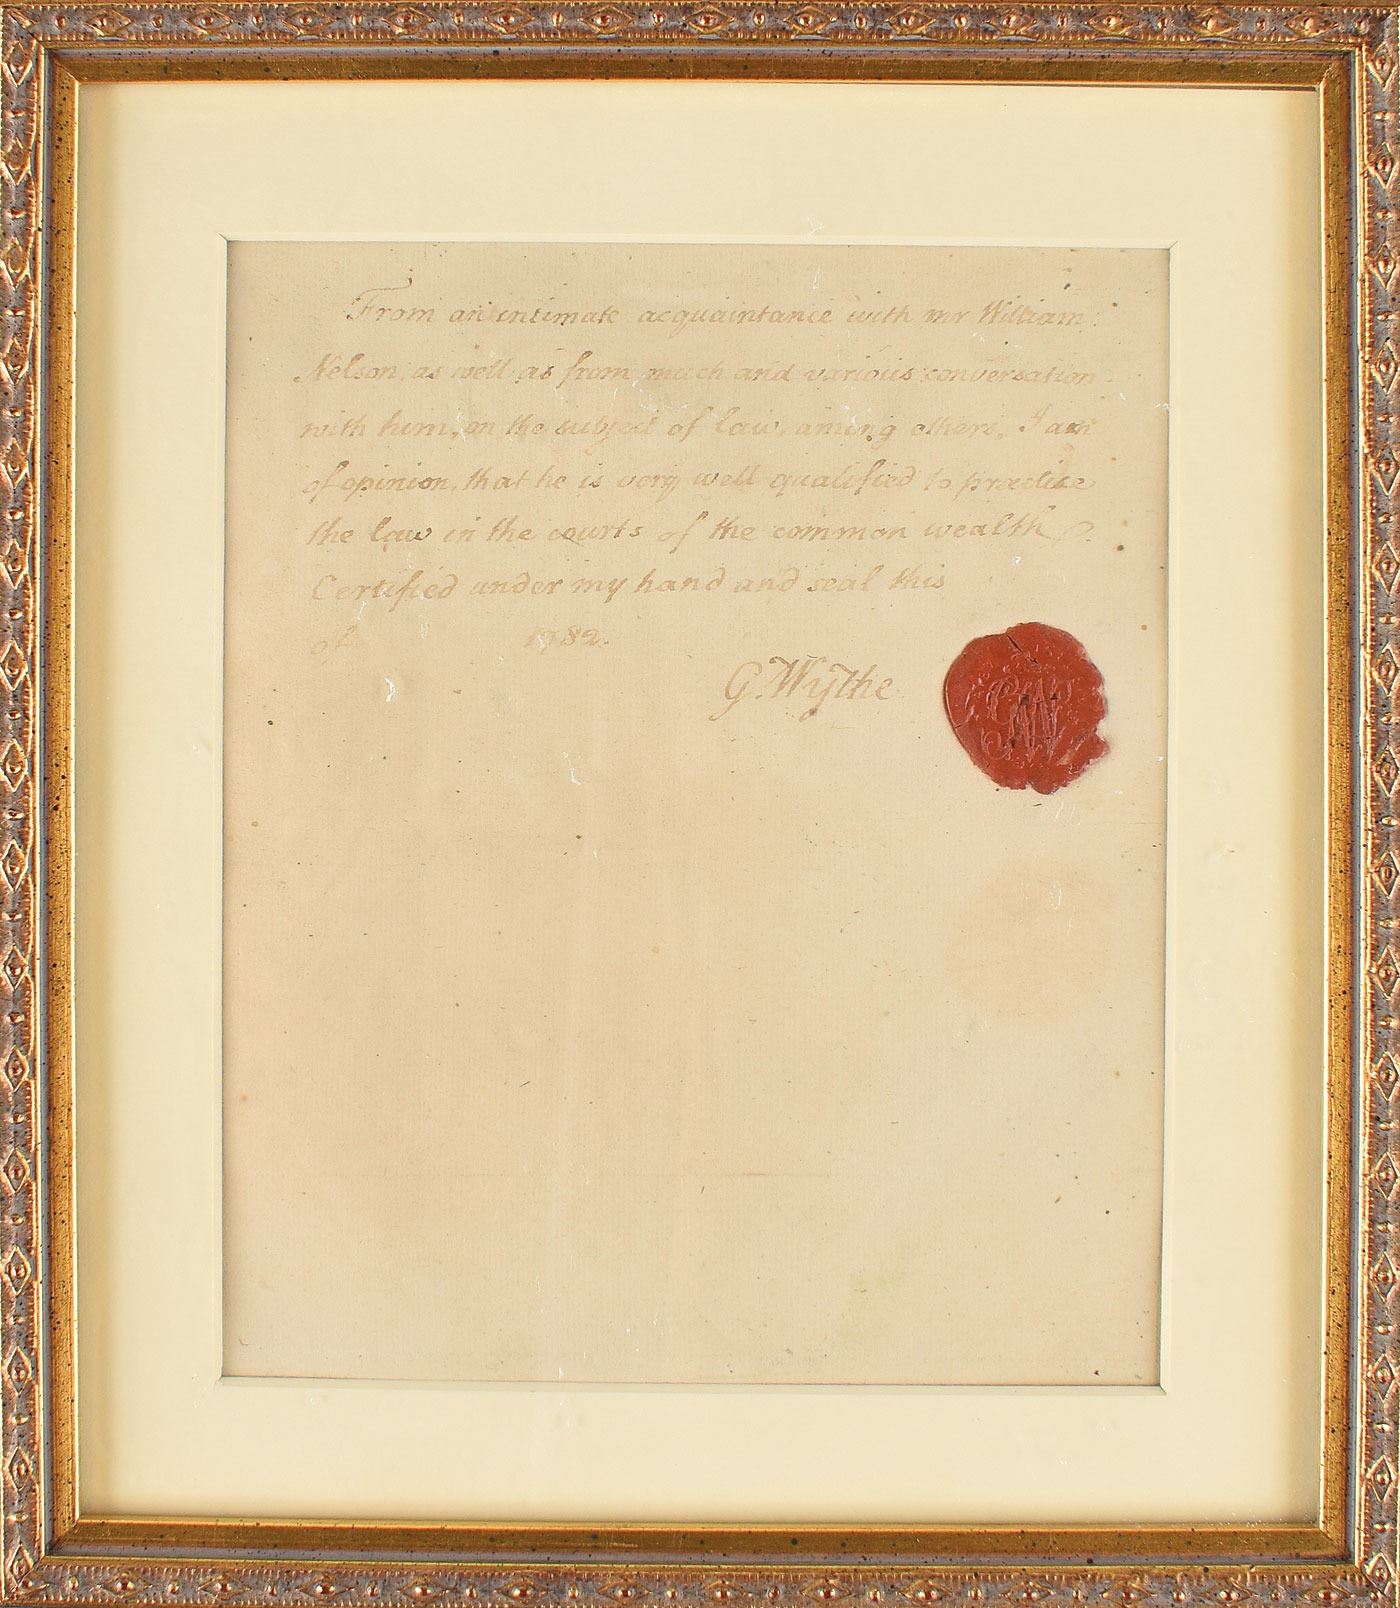 From an intimate acquaintance with mr William
Nelson, as well as from much and various conversation
with him, on the subject of law, among others, I am
of opinion, that he is very well qualified to practice
the law in the courts of the common wealth.
Certified under my hand and seal this
of 1782.
G. Wythe
GW